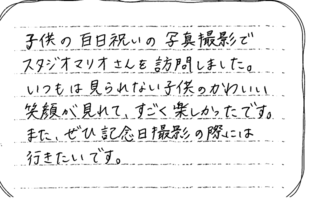 子供の百日祝いの写真撮影で
スタジオマリオさんを訪問しました。
いつもは見られない子供のかわいい
笑顔が見れて、すごく楽しかったです。
また、ぜひ記念日撮影の際には
行きたいです。